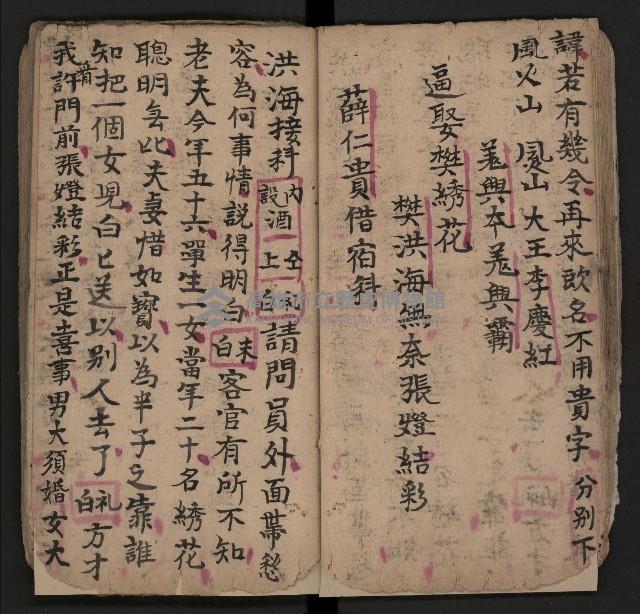 諱若有幾令再來改名不用貴字 分別下
風火山 風山 大王李慶紅
姜興本姜興霸
逼娶樊綉花
樊洪海無奈張燈結彩
薛仁貴借宿科
洪海接科 內設酒 上仝 白 請問員外面帶愁
容為何事情説得明白 末白 客官有所不知
老夫今年五十六單生一女當年二十名綉花
聰明無比夫妻惜如寶以為半子之靠誰
知把一個女児白白送以別人去了 礼白 方才
我許門前張燈結彩正是喜事男大須婚女大
高雄市立歷史博物館
KAOHSIUNG MUSEUM OF HISTORY